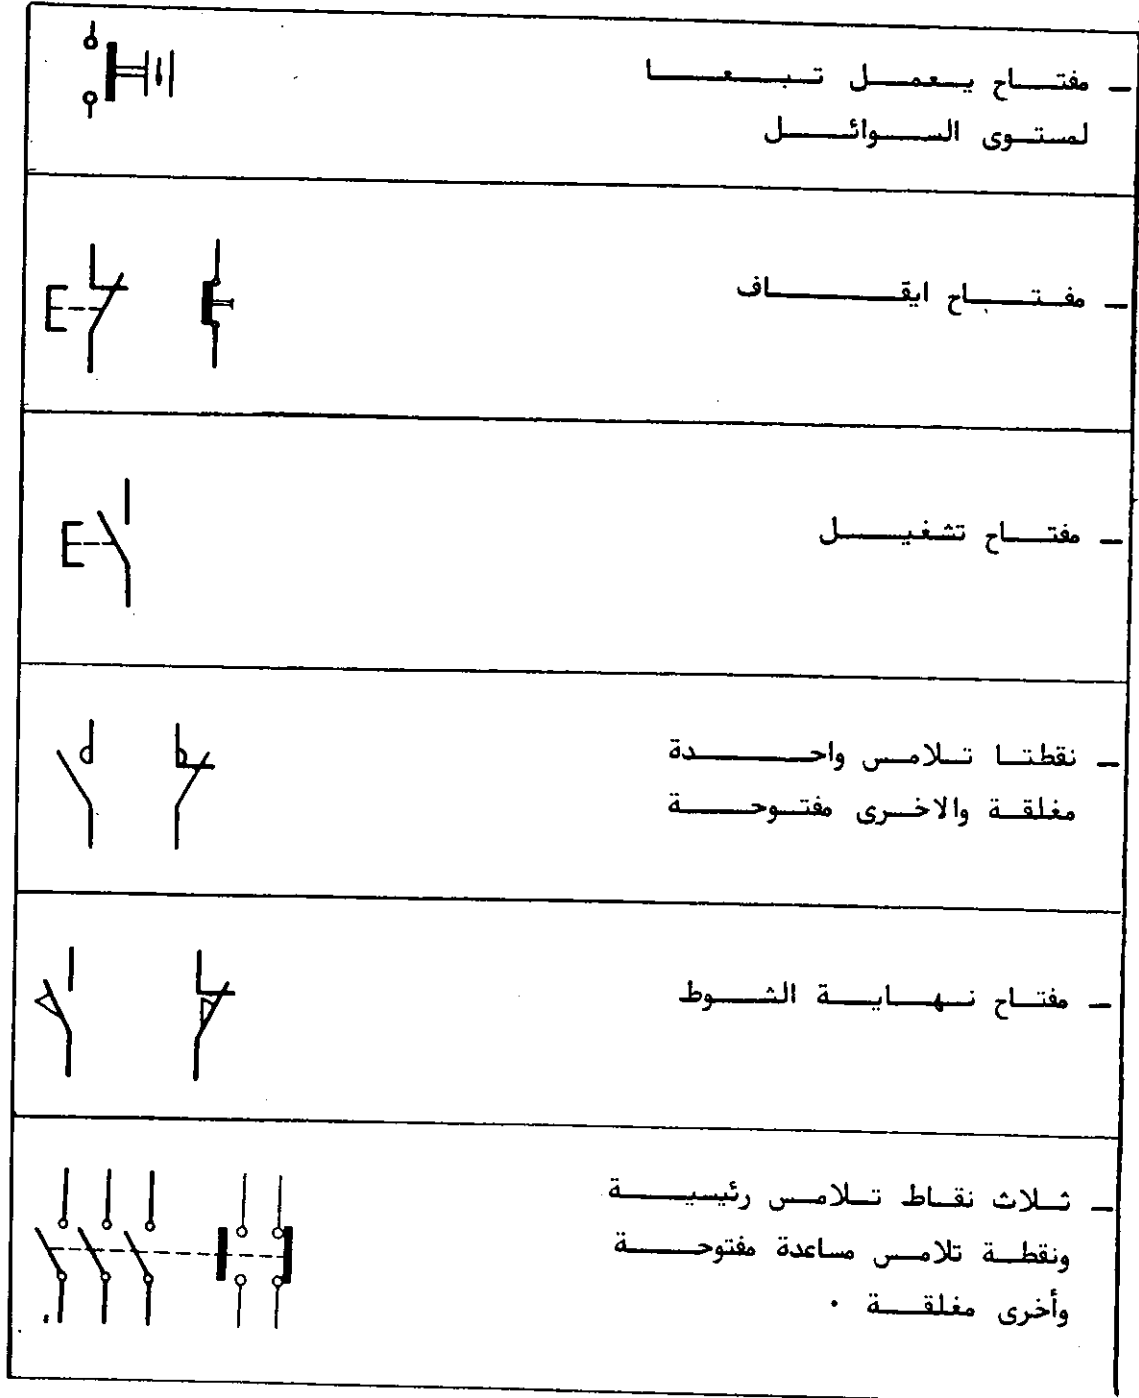 - مفتاح يعمل تبعا
لمستوى السوائل
- مفتاح ايقاف
- مفتاح تشغيل
- نقطتا تلامس واحدة
مغلقة والاخرى مفتوحة
- مفتاح نهاية الشوط
- ثلاث نقاط تلامس رئيسية
ونقطة تلامس مساعدة مفتوحة
وأخرى مغلقة .